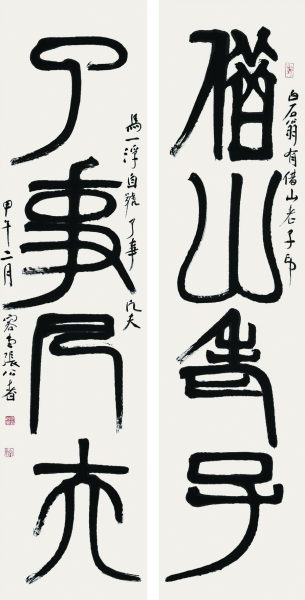 白石翁有借山老子印
借山老子
馬一浮自號了事凡夫
了事凡夫
甲午二月
張公者